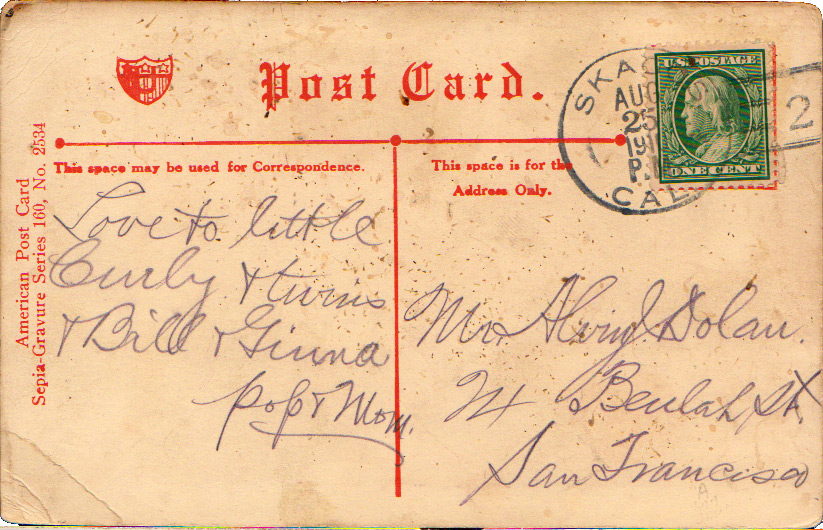 Post Card.
American Post Card
Sepia-Gravure Series 160, No. 2534
This space may be used for Correspondence.
This space is for the
Address Only.
U.S. POSTAGE
ONE CENT
SKAG
AUG
25
191
P.
CAL.
2
Love to little
Curly & twins
& Bill & Ginna
Pop & Mom.
Mr. Dolan.
24 Beulah St.
San Francisco